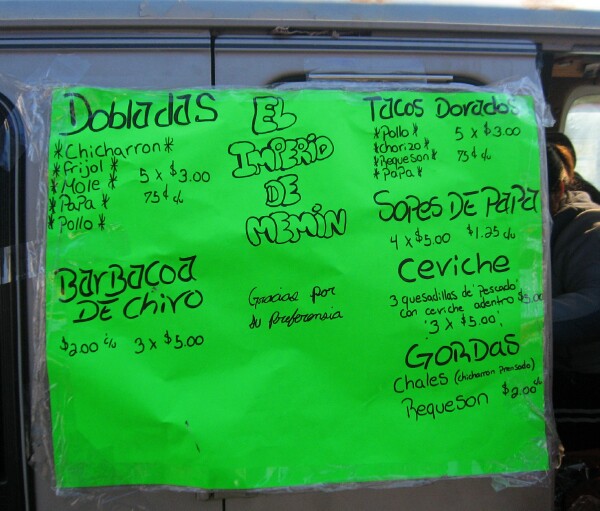 Dobladas
*Chicharron*
*frijol*
*Mole*
*Papa*
*Pollo*
5 x $3.00
75¢ c/u
Barbacoa
De Chivo
$2.00 c/u 3 x $5.00
El
Imperio
De
Memin
Gracias por
su Preferencia
Tacos Dorados
*Pollo*
*chorizo*
*Requeson*
*Papa*
5 x $3.00
75¢ c/u
Sopes De Papa
4 x $5.00 $1.25 c/u
Ceviche
3 quesadillas de "Pescado"
con ceviche adentro $5.00
"3 x $5.00"
Gordas
Chales (chicharron Prensado)
Requeson $2.00 c/u